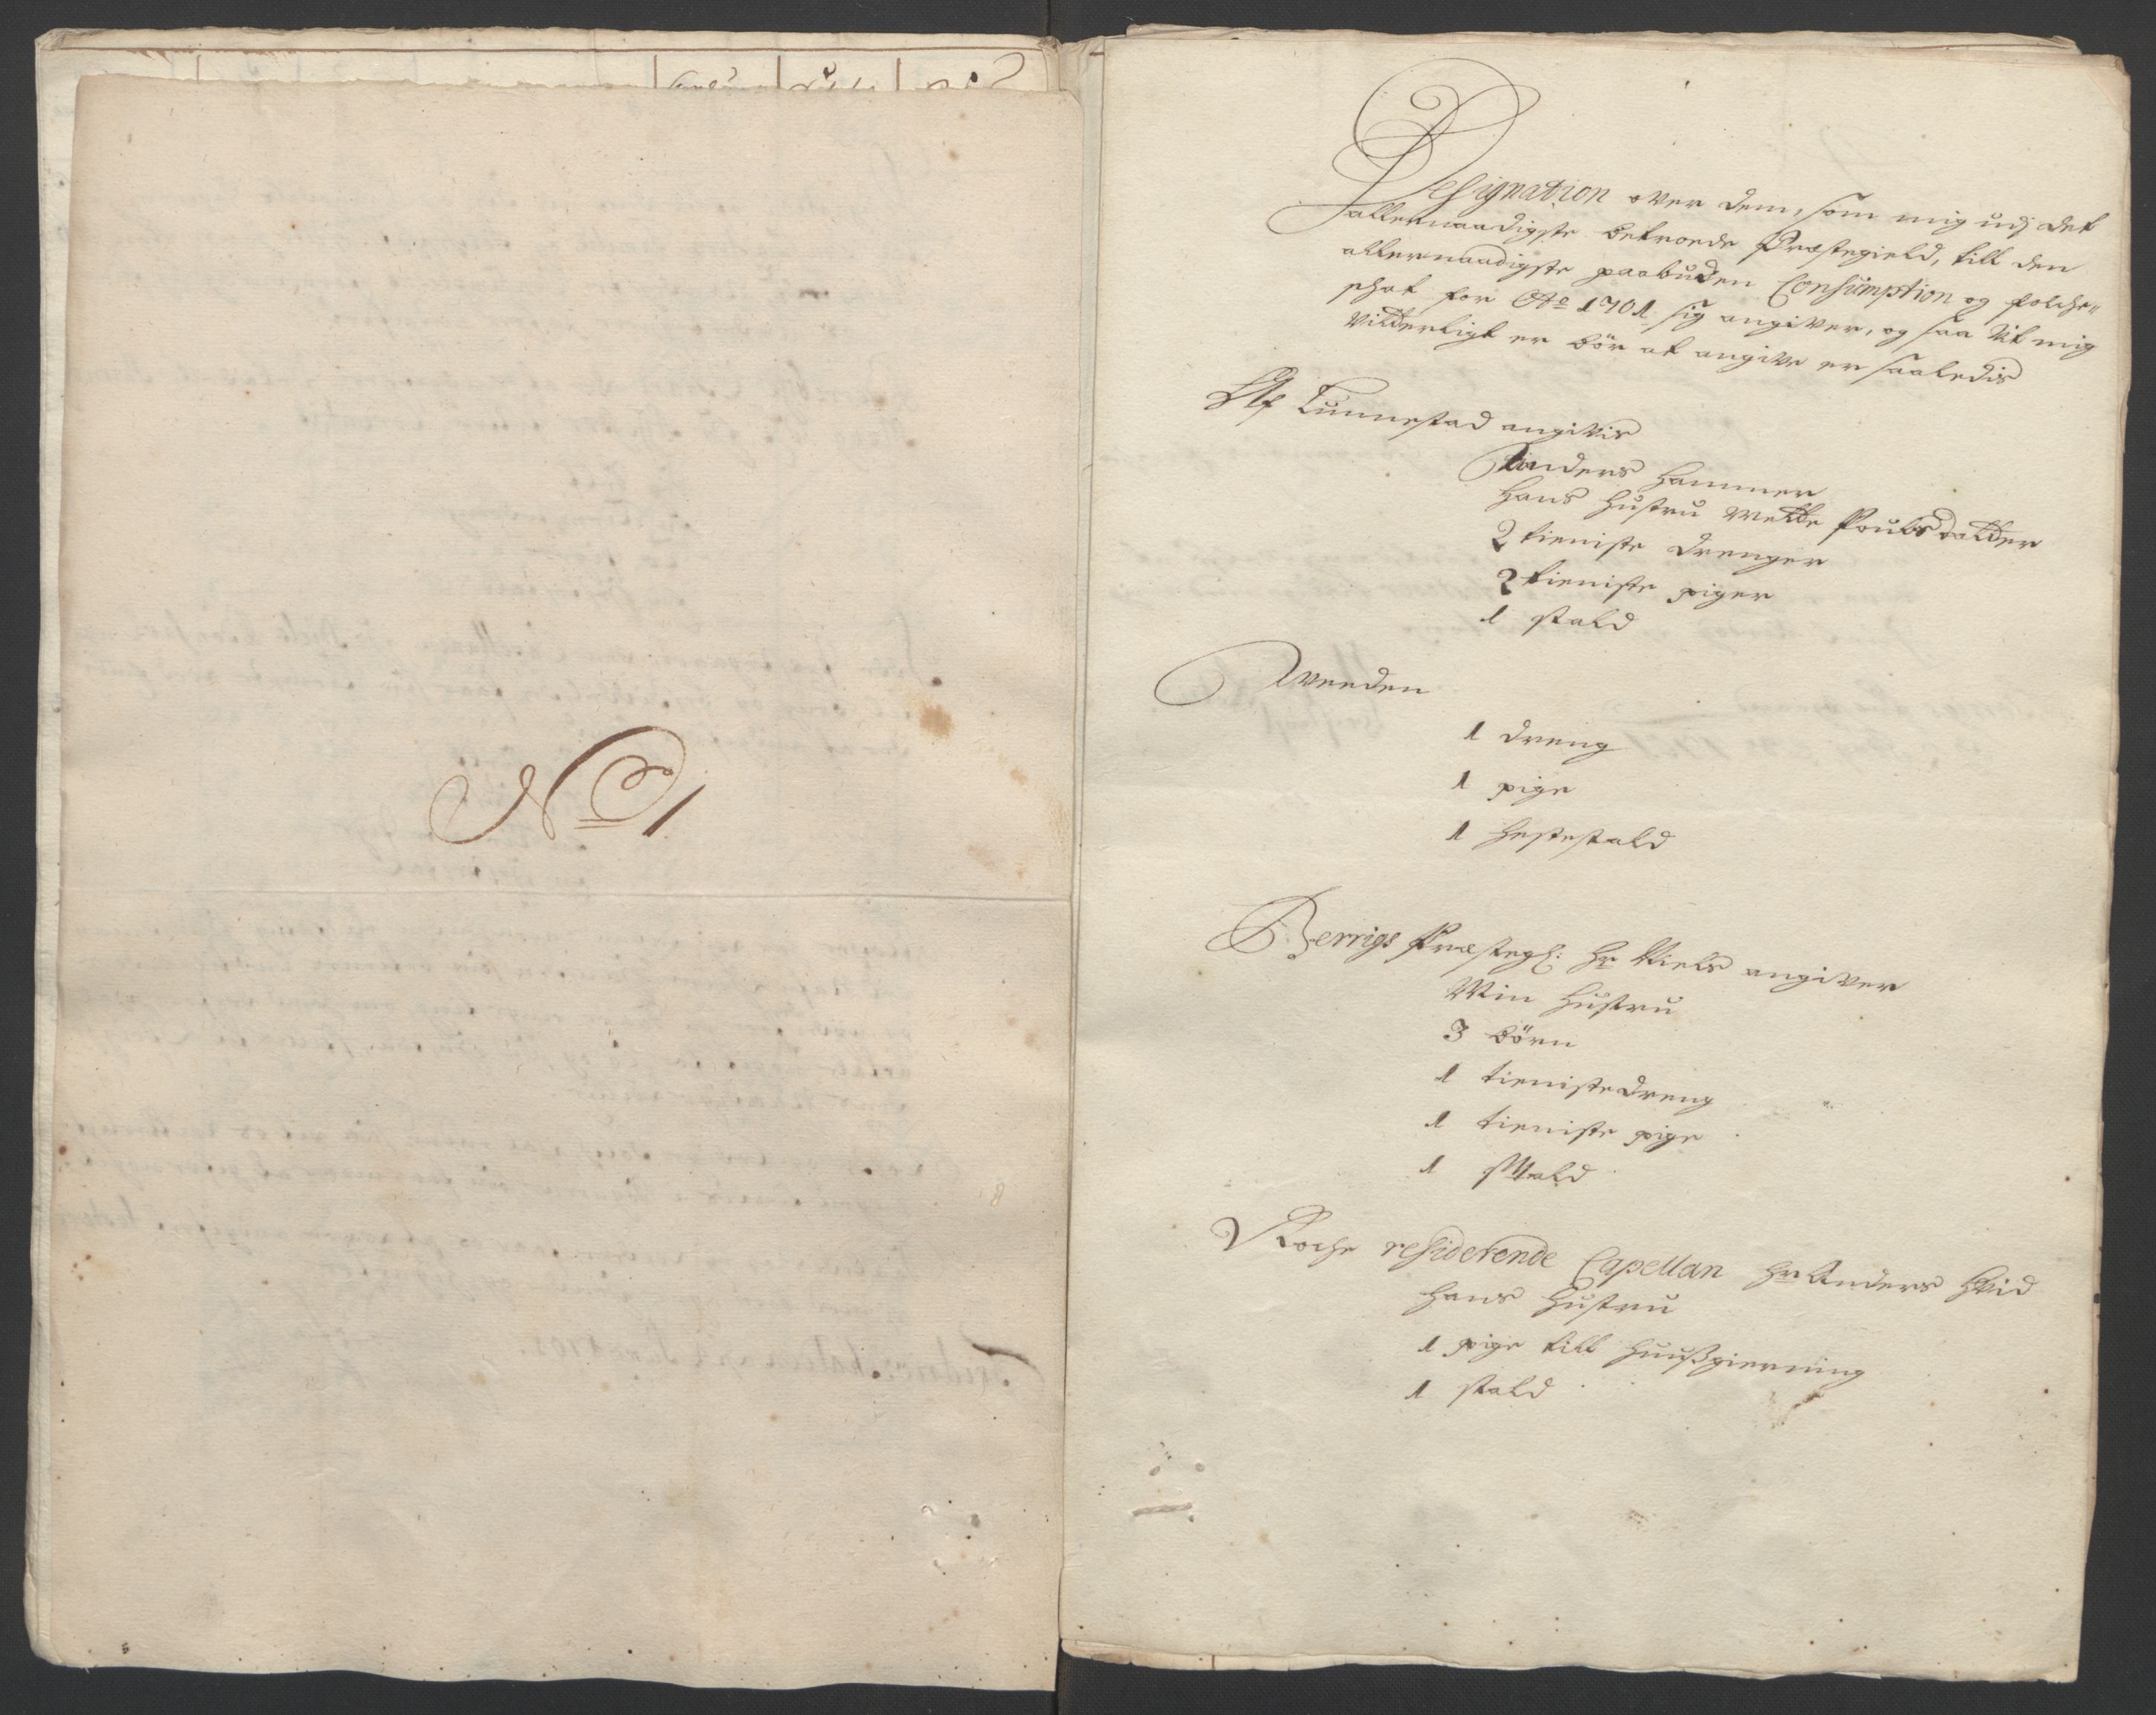 No 1
Designation over dem, som mig udj det
allernaadigste betroede Præstegield, till den
allernaadigste paabuden Consumption og folche-
schat for Ao 1701 sig angiver, og saa vit mig
vitterligt er bör at angive er saaledis
Af Tunnestad angivis
Anders Hammer
Hans Hustru Mette Poulsdatter
2 tieniste drenger
2 tieniste piger
1 stald
Weeden
1 dreng
1 pige
1 hestestald
Berrigs Præstegh: Hr Niels angiver
Min Hustru
3 börn
1 tieniste dreng
1 tieniste pige
1 stald
Roche residerende Capellan Hr Anders Hvid
Hans Hustru
1 pige till huusgierning
1 stald